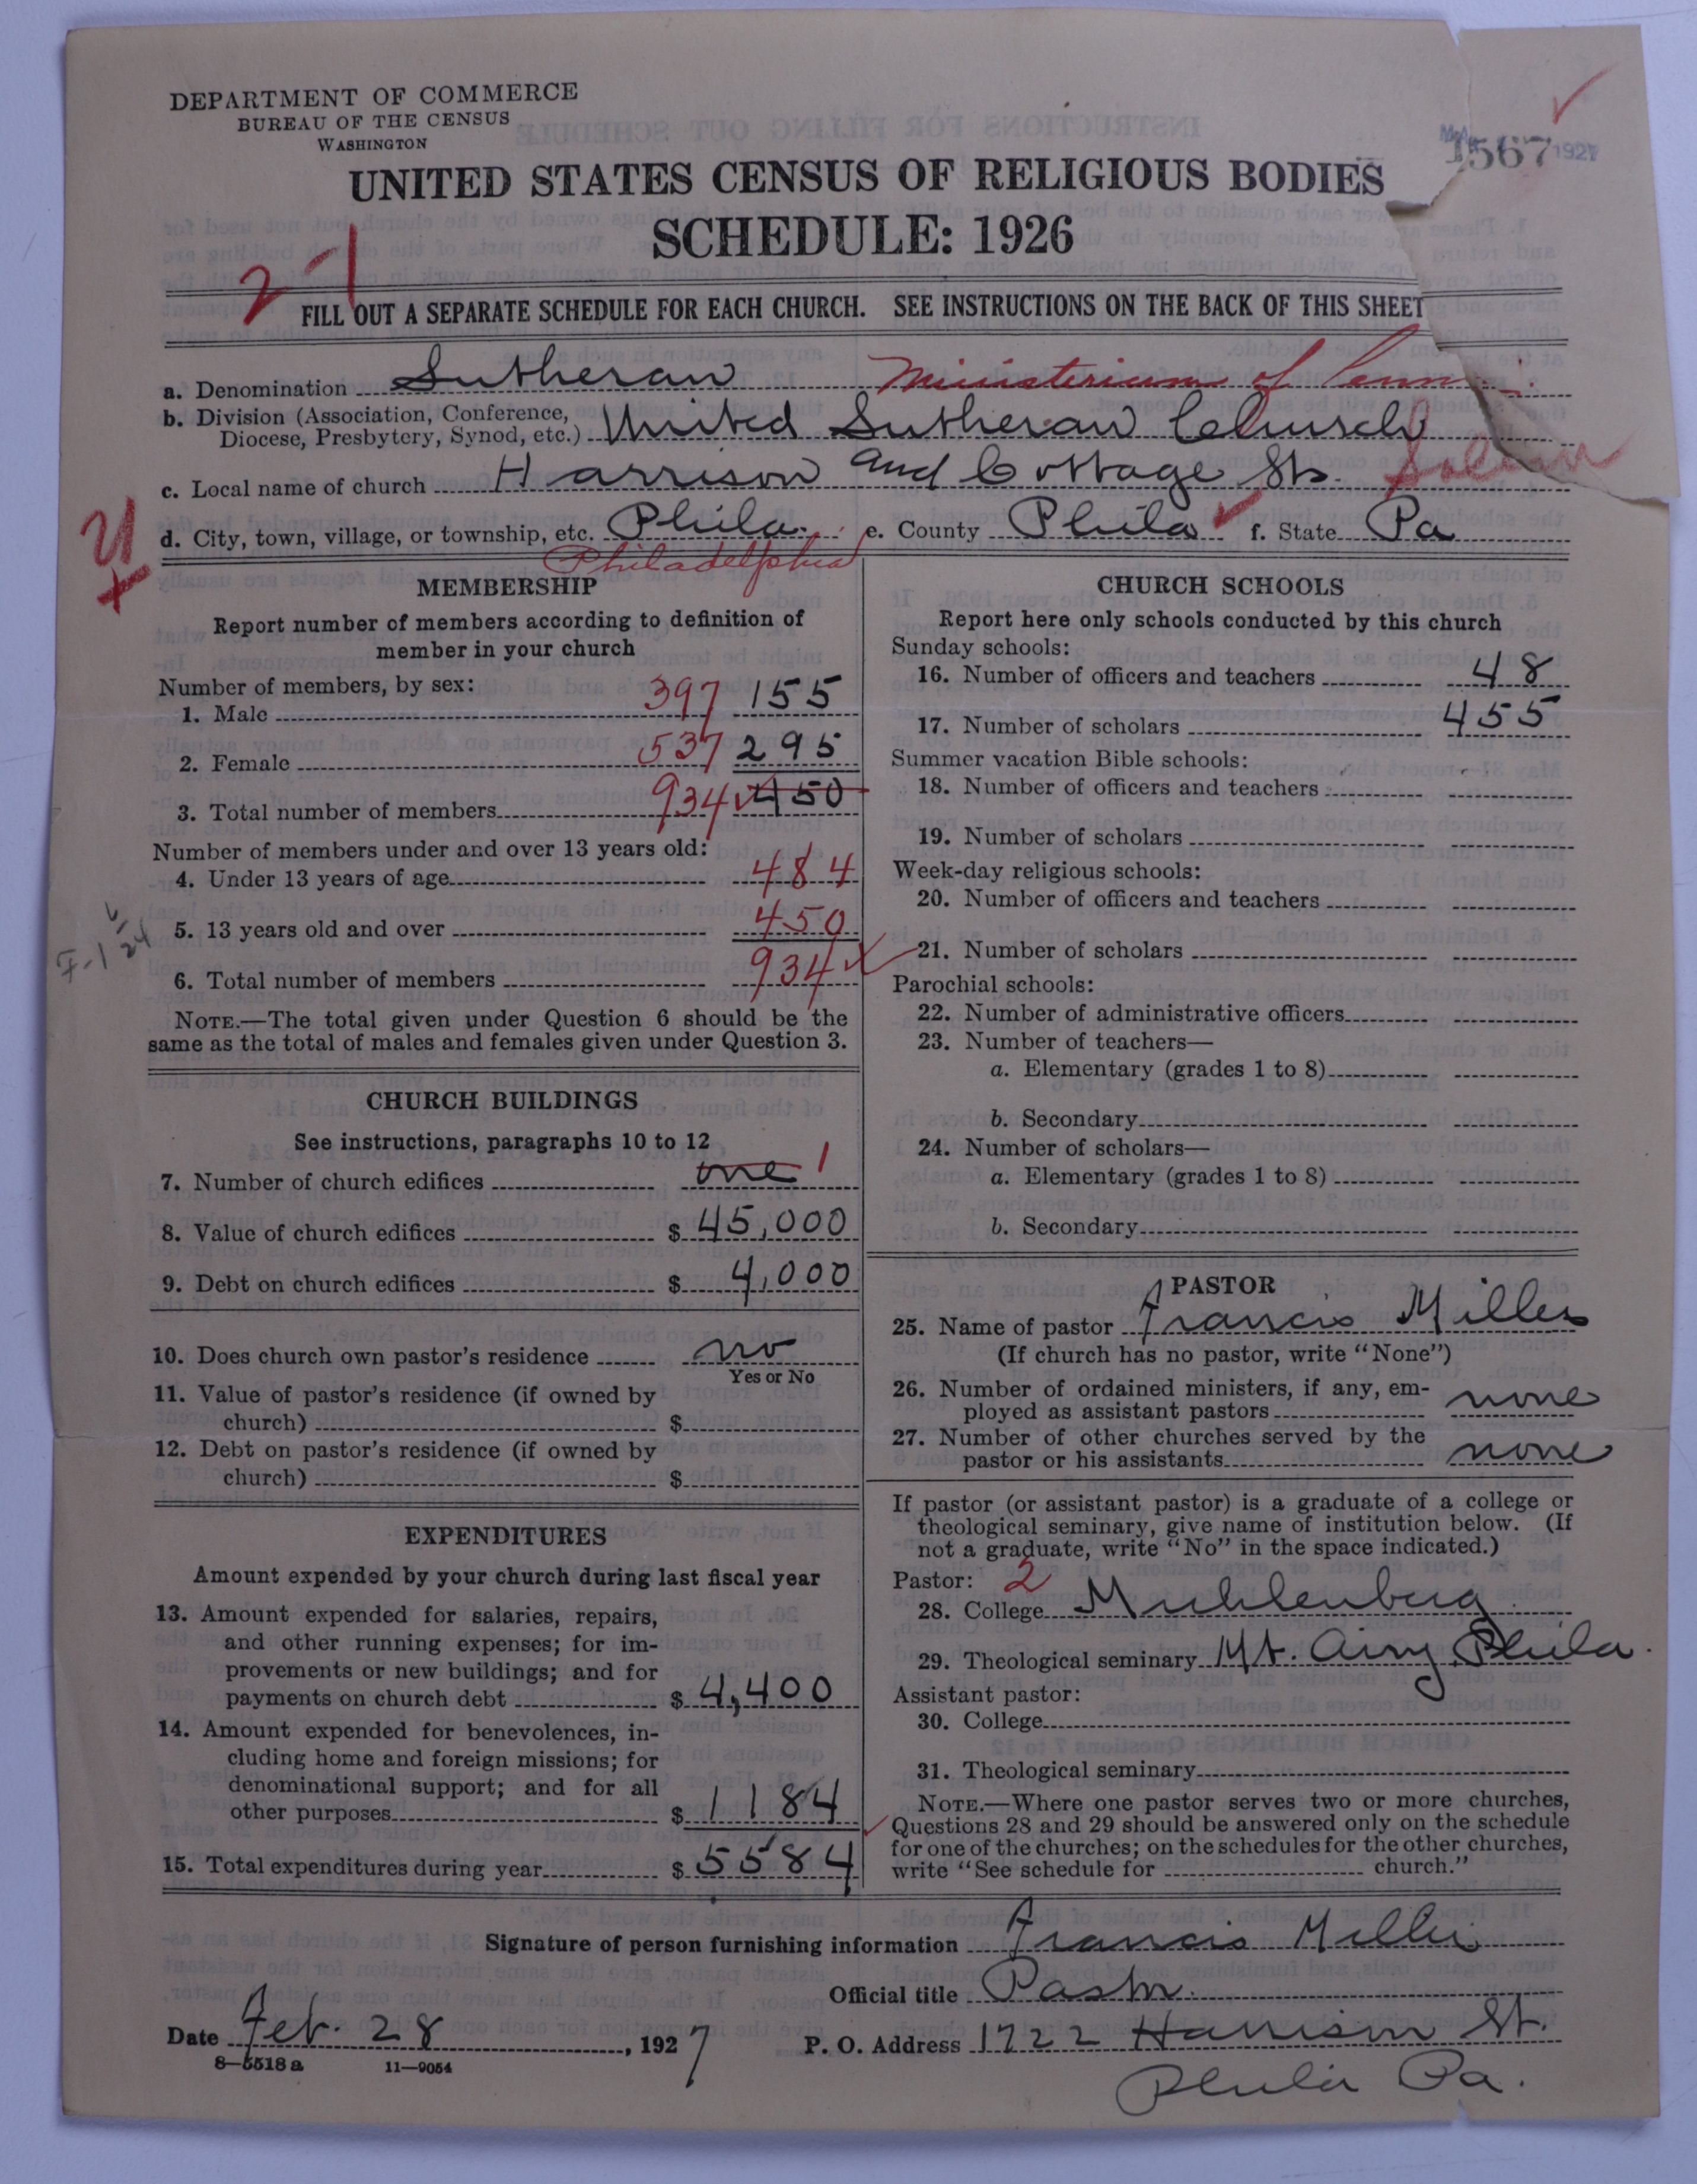 DEPARTMENT OF COMMERCE
BUREAU OF THE CENSUS
WASHINGTON
1567
1927
UNITED STATES CENSUS OF RELIGIOUS BODIES
SCHEDULE: 1926
2-1
FILL OUT A SEPARATE SCHEDULE FOR EACH CHURCH. SEE INSTRUCTIONS ON THE BACK OF THIS SHEET
a. Denomination Lutheran Ministerium of Penn
b. Division (Association, Conference,
Diocese, Presbytery, Synod, etc.) United Lutheran Church
c. Local name of church Harrison and Cottage Sts. Salem
d. City, town, village, or township, etc. Phila. e. County Phila f. State Pa
Philadelphia
MEMBERSHIP
Report number of members according to definition of
member in your church
Number of members, by sex:
1. Male 397 155
2. Female 537 295
3. Total number of members 934 450
Number of members under and over 13 years old:
4. Under 13 years of age 484
5. 13 years old and over 450
6. Total number of members 934
NOTE.—The total given under Question 6 should be the
same as the total of males and females given under Question 3.
CHURCH BUILDINGS
See instructions, paragraphs 10 to 12
7. Number of church edifices one 1
8. Value of church edifices $ 45,000
9. Debt on church edifices $ 4,000
10. Does church own pastor's residence no
Yes or No
11. Value of pastor's residence (if owned by
church) $
12. Debt on pastor's residence (if owned by
church) $
EXPENDITURES
Amount expended by your church during last fiscal year
13. Amount expended for salaries, repairs,
and other running expenses; for im-
provements or new buildings; and for
payments on church debt $ 4,400
14. Amount expended for benevolences, in-
cluding home and foreign missions; for
denominational support; and for all
other purposes $ 1184
15. Total expenditures during year $ 5584
CHURCH SCHOOLS
Report here only schools conducted by this church
Sunday schools:
16. Number of officers and teachers 48
17. Number of scholars 455
Summer vacation Bible schools:
18. Number of officers and teachers
19. Number of scholars
Week-day religious schools:
20. Number of officers and teachers
21. Number of scholars
Parochial schools:
22. Number of administrative officers
23. Number of teachers—
a. Elementary (grades 1 to 8)
b. Secondary
24. Number of scholars—
a. Elementary (grades 1 to 8)
b. Secondary
PASTOR
25. Name of pastor Francis Miller
(If church has no pastor, write "None")
26. Number of ordained ministers, if any, em-
ployed as assistant pastors none
27. Number of other churches served by the
pastor or his assistants none
If pastor (or assistant pastor) is a graduate of a college or
theological seminary, give name of institution below. (If
not a graduate, write "No" in the space indicated.)
Pastor: 2
28. College Muhlenberg
29. Theological seminary Mt. Airy Phila.
Assistant pastor:
30. College
31. Theological seminary
NOTE.—Where one pastor serves two or more churches,
Questions 28 and 29 should be answered only on the schedule
for one of the churches; on the schedules for the other churches,
write "See schedule for church."
Signature of person furnishing information Francis Miller
Official title Pastor.
Date Feb. 28, 1927 P. O. Address 1722 Harrison St.
8-5518a 11-9054
Phila Pa.